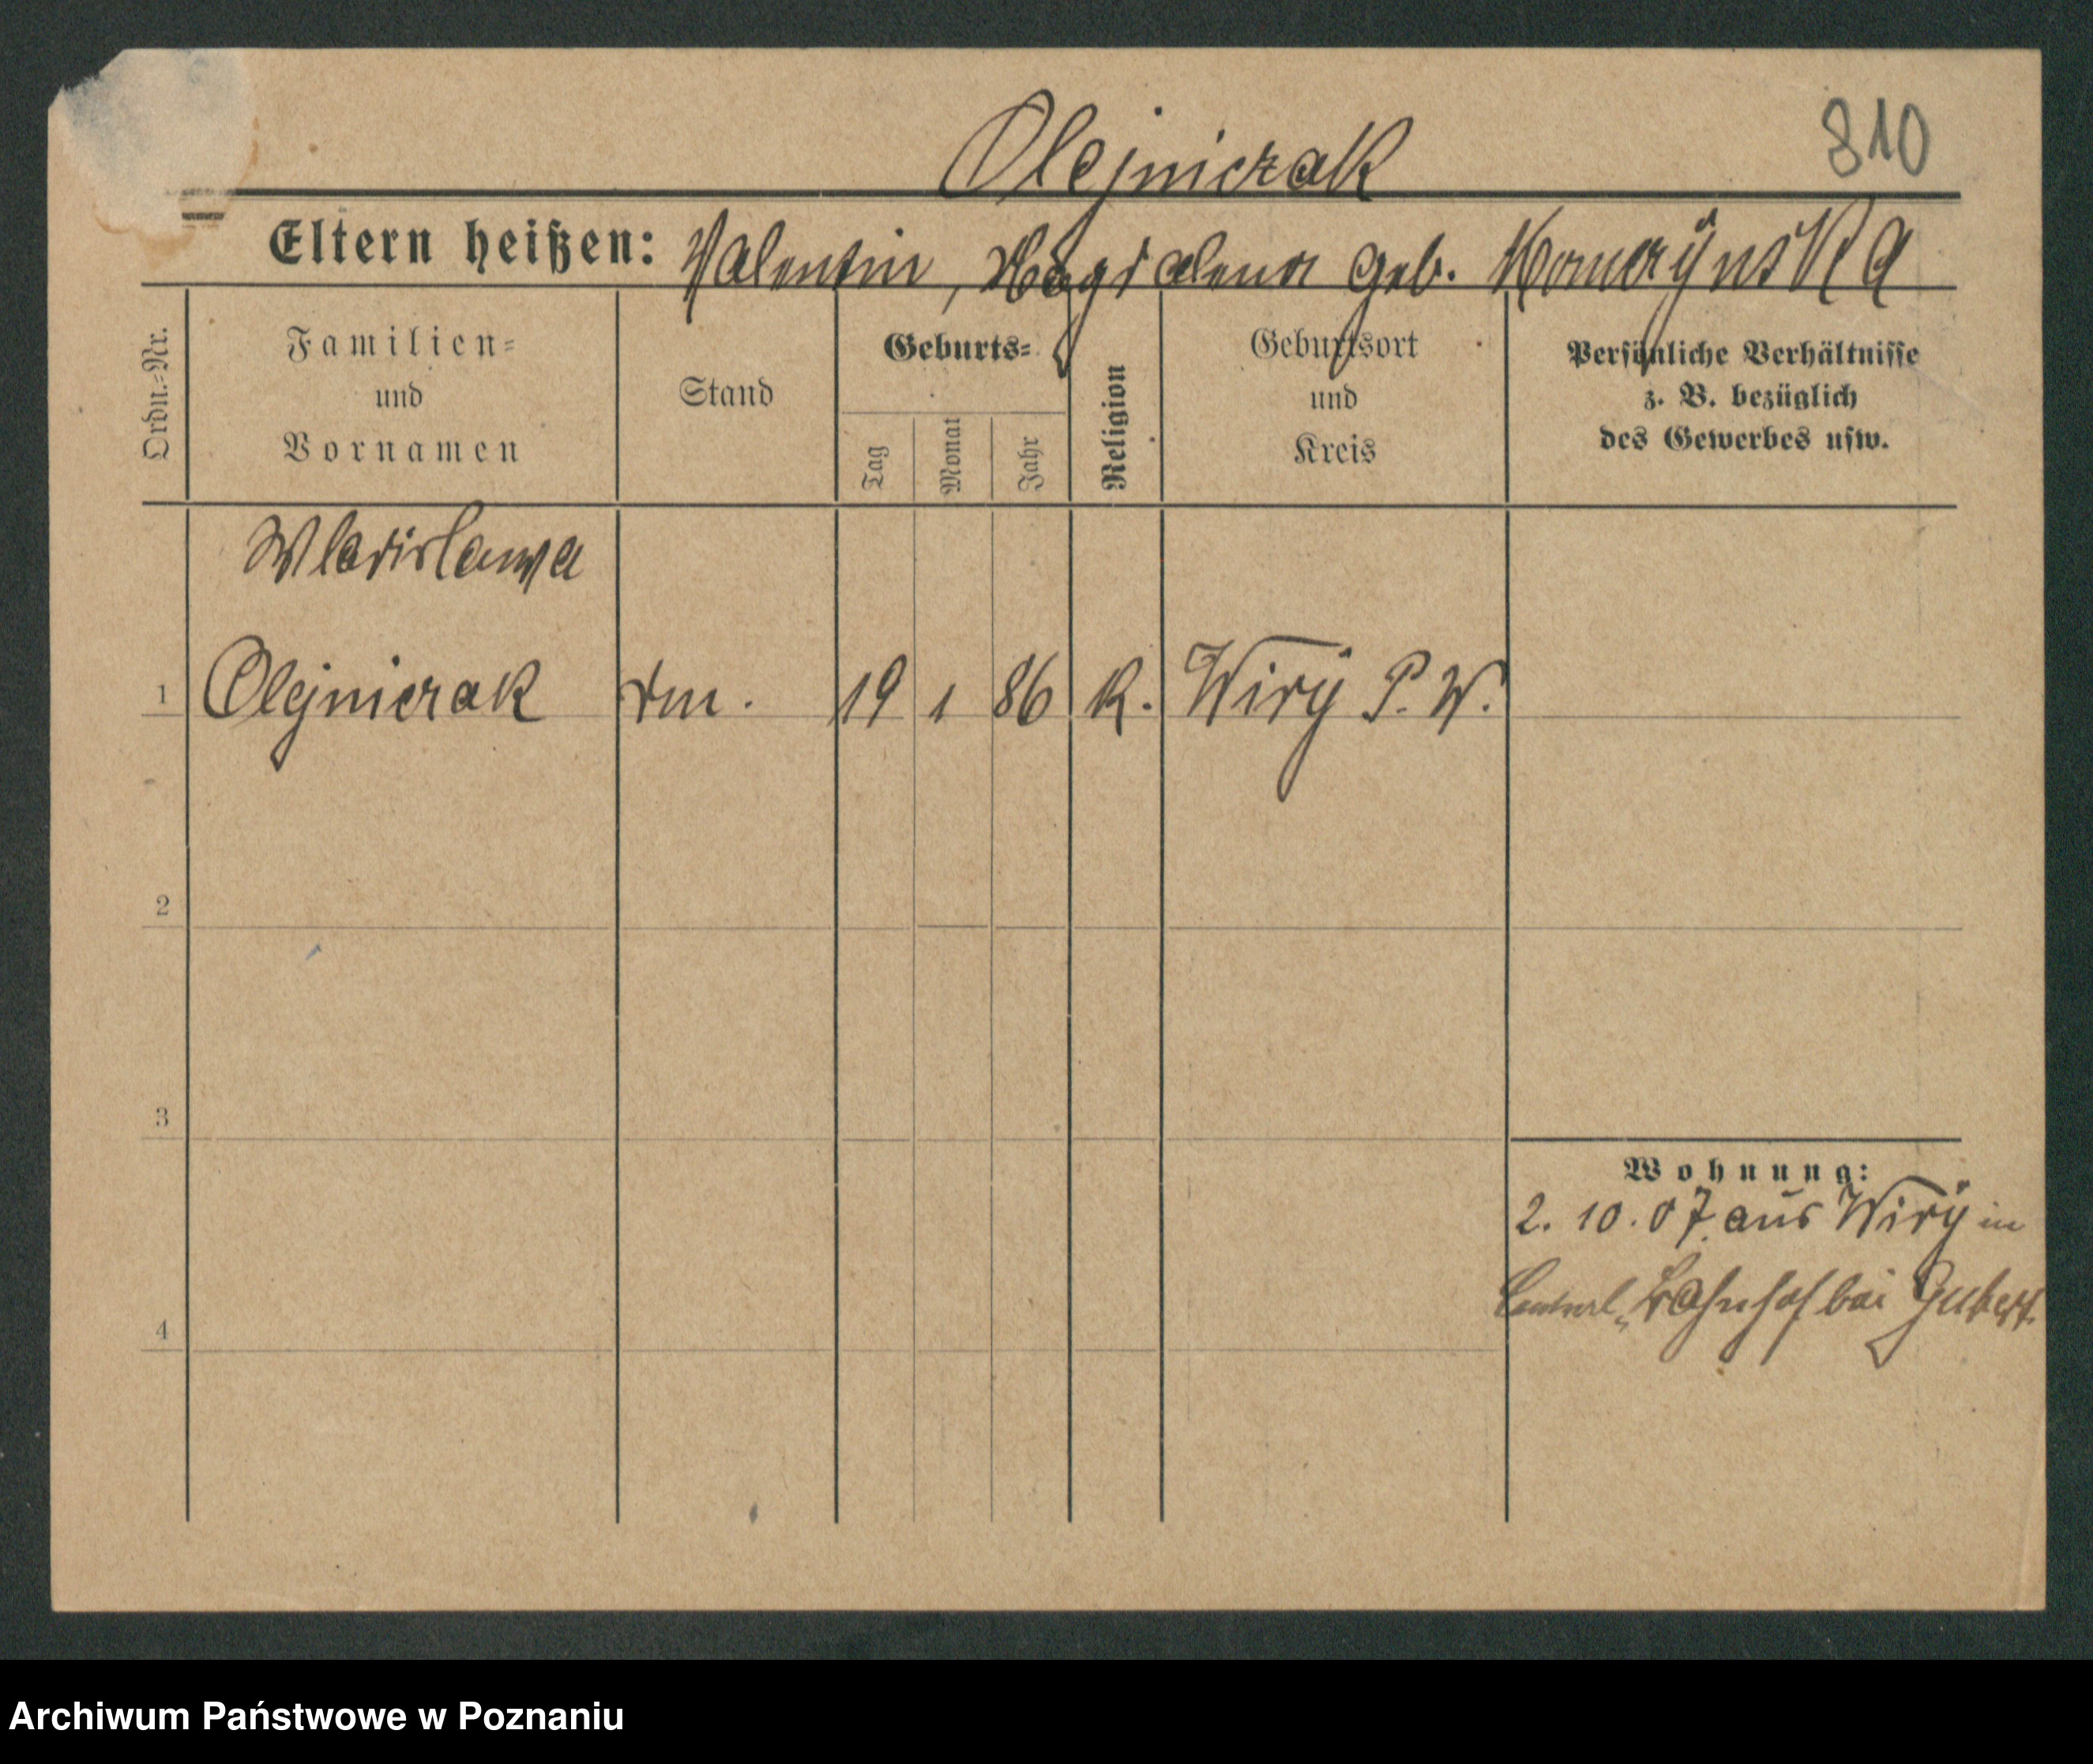 Olejniczak
810
Eltern heißen: Valentin, Magdalena geb.
Ordn.-Nr.
Familien-
und
Vornamen
Stand
Geburts-
Tag
Monat
Jahr
Religion
Geburtsort
und
Kreis
Persönliche Verhältnisse
z. B. bezüglich
des Gewerbes usw.
Wladislawa
1 Olejniczak dm. 19 1 86 K. Wiry P. W.
2
3
Wohnung:
2. 10. 07 aus Wiry in
Central-Bahnhof bei
4
Archiwum Państwowe w Poznaniu